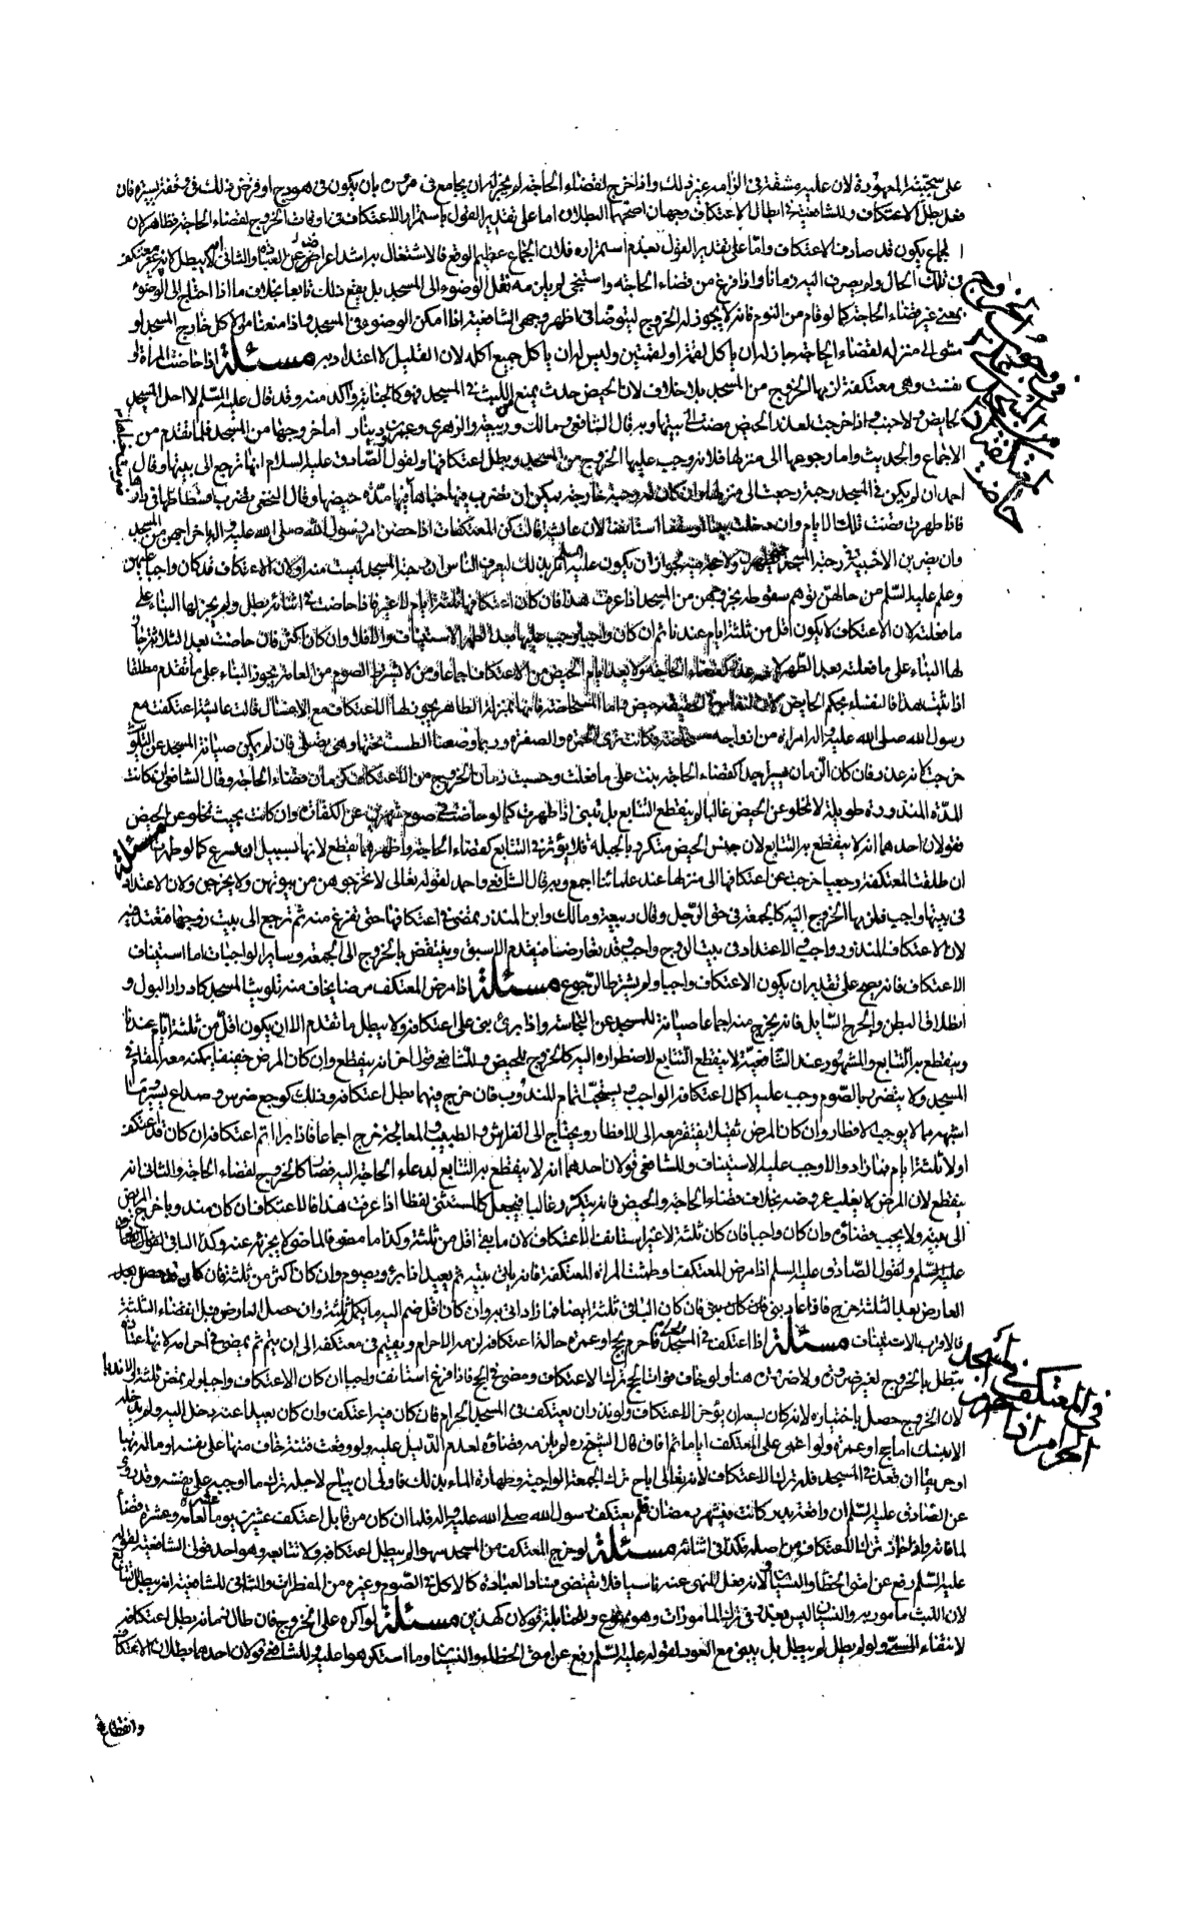 على سجيته المعهودة لان عليه مشقة فى الزامه غير ذلك واذا خرج لقضاء الحاجة لم يجز له ان يجامع فى مروره بان يكون فى هودج او فرض ذلك فى وقفة يسيرة فان
فعل بطل الاعتكاف وللشافعية فى ابطال الاعتكاف وجهان اصحهما البطلان اما على تقدير القول باستمرار الاعتكاف فى اوقات الخروج لقضاء الحاجة فظاهر لان
الجماع يكون قد صادف الاعتكاف واما على تقدير القول بعدم استمراره فلان الجماع عظيم الوقع فالاشتغال به اشد اعراضا عن العبادة والثانى انه لا يبطل لانه غير معتكف
فى تلك الحال ولم يصرف اليه زمانا واذا فرغ من قضاء الحاجة واستنجى لم يلزمه نقل الوضوء الى المسجد بل يقع ذلك تابعا بخلاف ما اذا احتاج الى الوضوء
بمعنى غير قضاء الحاجة كما لو قام من النوم فانه لا يجوز له الخروج ليتوضأ فى اظهر وجهى الشافعية اذا امكن الوضوء فى المسجد واذا منعناه من الاكل خارج المسجد او
مشى الى منزله لقضاء الحاجة جاز له ان ياكل لقمة او لقمتين وليس له ان ياكل جميع اكله لان القليل لا اعتداد به مسئلة اذا حاضت المراة او
نفست وهى معتكفة لزمها الخروج من المسجد بلا خلاف لان الحيض حدث يمنع اللبث فى المسجد فهو كالجنابة وآكد منه وقد قال عليه السلم لا احل المسجد
لحايض ولا جنب واذا خرجت لعذر الحيض مضت الى بيتها وبه قال الشافعى ومالك وربيعة والزهرى وعمرو بن دينار اما خروجها من المسجد فلما تقدم من
الاجماع والحديث واما رجوعها الى منزلها فلانه وجب عليها الخروج من المسجد وبطل اعتكافها ولقول الصادق عليه السلام انها ترجع الى بيتها وقال
احد ان لم يكن فى المسجد رحبة رجعت الى منزلها وان كان له رحبة خارجة يمكن ان تضرب فيها خباها فيها مدة حيضها وقال النخعى تضرب فسطاطها فى دارها
فاذا طهرت قضت تلك الايام وان دخلت بيتا او سقفا استانفت لان عايشة قالت كن المعتكفات اذا حضن امر رسول الله صلى الله عليه واله باخراجهن من المسجد
وان يضربن الاخبية فى رحبة المسجد حتى يطهرن ولا حجة فيه لجواز ان يكون عليه السلم امر بذلك ليعرف الناس ان رحبة المسجد ليست منه او لان الاعتكاف قد كان واجبا عليهن
وعلم عليه السلم من حالهن توهم سقوطه بخروجهن من المسجد اذا عرفت هذا فان كان اعتكافها ثلثة ايام لا غير فاذا حاضت فى اثنائه بطل ولم يجز لها البناء على
ما فعلته لان الاعتكاف لا يكون اقل من ثلثة ايام عندنا ثم ان كان واجبا وجب عليها بعد الطهر الاستيناف والا فلا وان كان اكثر فان حاضت بعد الثلاثة جاز
لها البناء على ما فعلته بعد الطهر لانه عذر كقضاء الحاجة ولا يعد ايام الحيض من الاعتكاف اجماعا ومن لا يشترط الصوم من العامة يجوز البناء على ما تقدم مطلقا
اذا ثبت هذا فالنفساء بحكم الحايض لان النفاس فى الحقيقة حيض واما المستحاضة فانها بمنزلة الطاهر يجوز لها الاعتكاف مع الاغتسال قالت عايشة اعتكفت مع
رسول الله صلى الله عليه واله امراة من ازواجه مستحاضة فكانت ترى الحمرة والصفرة وربما وضعنا الطست تحتها وهى تصلى فان لم يمكن صيانة المسجد عن التلويث
خرجت لانه عذر فان كان الزمان يسيرا جدا كقضاء الحاجة بنت على ما فعلت وحسبت زمان الخروج من الاعتكاف كزمان قضاء الحاجة وقال الشافعى ان كانت
المدة المنذورة طويلة لا تخلو عن الحيض غالبا لم ينقطع التتابع بل تبنى اذا طهرت كما لو حاضت فى صوم شهرين عن الكفارة وان كانت بحيث تخلو عن الحيض
فقولان احدهما انه لا ينقطع به التتابع لان جنس الحيض متكرر بالجبلة فلا يؤثر فى التتابع كقضاء الحاجة واظهرهما يقطع لانها بسبيل ان تسرع كما لو طهرت مسئلة
ان طلقت المعتكفة رجعيا خرجت عن اعتكافها الى منزلها عند علمائنا اجمع وبه قال الشافعى واحمد لقوله تعالى لا تخرجوهن من بيوتهن ولا يخرجن ولان الاعتداد
فى بيتها واجب فلزمها الخروج اليه كالجمعة فى حق الرجل وقال ربيعة ومالك وابن المنذر تمضى فى اعتكافها حتى تفرغ منه ثم ترجع الى بيت زوجها فتعتد فيه
لان الاعتكاف المنذور واجب والاعتداد فى بيت الزوج واجب وقد تعارضا فيقدم الاسبق وينتقض بالخروج الى الجمعة وساير الواجبات اما استيناف
الاعتكاف فانه يصح على تقدير ان يكون الاعتكاف واجبا ولم يشترط الرجوع مسئلة اذا مرض المعتكف مرضا يخاف منه تلويث المسجد كادرار البول و
انطلاق البطن والجرح السايل فانه يخرج منه اجماعا صيانة للمسجد عن النجاسة واذا برئ بنى على اعتكافه ولا يبطل ما تقدم الا ان يكون اقل من ثلثة ايام عندنا
وينقطع به التتابع والمشهور عند الشافعية لا ينقطع التتابع لاضطراره اليه كالخروج للحيض وللشافعى قول اخر انه ينقطع وان كان المرض خفيفا يمكنه معه المقام فى
المسجد ولا يتضرر بالصوم وجب عليه اكمال اعتكافه الواجب ويستحب اتمام المندوب فان خرج فيهما بطل اعتكافه وذلك كوجع ضرس وصداع يسير وما
اشبههما مما لا يوجب الافطار وان كان المرض ثقيلا يفتقر معه الى الافطار ويحتاج الى الفراش والطبيب والمعالجة خرج اجماعا فاذا برا اتم اعتكافه ان كان قد اعتكف
اولا ثلثة ايام فما زاد والا وجب عليه الاستيناف وللشافعى قولان احدهما انه لا ينقطع به التتابع لدعاء الحاجة اليه فصار كالخروج لقضاء الحاجة والثانى انه
ينقطع لان المرض لا يغلب عروضه بخلاف قضاء الحاجة والحيض فانه يتكرر غالبا فيجعل كالمستثنى لفظا اذا عرفت هذا فالاعتكاف ان كان مندوبا خرج المريض
الى بيته ولا يجب قضاؤه وان كان واجبا فان كان ثلثة لا غير استانف الاعتكاف لان ما بقى اقل من ثلثة وكذا ما مضى فالماضى لا يجزئ عنه وكذا الباقى لقول الصادق
عليه السلم ولقول الصادق عليه السلم اذا مرض المعتكف او طمثت المراة المعتكفة فانه ياتى بيته ثم يعيد اذا برئ ويصوم وان كان اكثر من ثلثة فان كان قد حصل
العارض بعد الثلثة خرج فاذا عاد بنى فان كان الباقى ثلثة ايضا فما زاد اتى به وان كان اقل ضم اليه ما يكمل ثلثة وان حصل العارض قبل انقضاء الثلثة
فالاقرب الاستيناف مسئلة اذا اعتكف فى المسجد الحرام فاحرم بحج او عمرة حالة اعتكافه لزمه الاحرام ويقيم فى معتكفه الى ان يتم ثم يمضى فى احرامه لانها عبادة
تبطل بالخروج لغير ضرورة ولا ضرورة هنا ولو خاف فوات الحج ترك الاعتكاف ومضى فى الحج فاذا فرغ استانف واجبا ان كان الاعتكاف واجبا ولم يمض ثلثة والا ندبا
لان الخروج حصل باختياره لانه كان يسعه ان يؤخر الاعتكاف ولو نذر ان يعتكف فى المسجد الحرام فان كان فيه اعتكف وان كان بعيدا عنه دخل اليه ولم يدخله
الا بنسك اما بحج او عمرة ولو اغمى على المعتكف اياما ثم افاق قال الشيخ ره لم يلزمه قضاؤه لعدم الدليل عليه ولو وقعت فتنة خاف منها على نفسه او ماله نهبا
او حريقا ان قعد فى المسجد فله ترك الاعتكاف لانه تعالى اباح ترك الجمعة الواجبة وطهارة الماء بذلك فاولى ان يباح لاجله ترك ما اوجبه على نفسه وقد روى
عن الصادق عليه السلم ان واقعة بدر كانت فى شهر رمضان فلم يعتكف رسول الله صلى الله عليه واله فلما ان كان من قابل اعتكف عشرين يوما عشرة لعامه وعشرة قضاء
لما فاته واذا جاز ترك الاعتكاف من اصله فكذا فى اثنائه مسئلة لو خرج المعتكف من المسجد سهوا لم يبطل اعتكافه ولا تتابعه وهو احد قولى الشافعية لقوله
عليه السلم رفع عن امتى الخطأ والنسيان ولانه فعل المنهى عنه ناسيا فلا يقتضى فساد العبادة كالاكل فى الصوم وغيره من المفطرات والثانى للشافعية انه يبطل التتابع
لان اللبث مامور به والنسيان ليس بعذر فى ترك المامورات وهو ممنوع وللحنابلة قولان كهذين مسئلة لو اكره على الخروج فان طال زمانه بطل اعتكافه
لانتفاء المسمى ولو لم يطل لم يبطل بل يبنى مع العود لقوله عليه السلم رفع عن امتى الخطاء والنسيان وما استكرهوا عليه وللشافعى قولان احدهما بطلان الاعتكاف
وانقطاع
فى وجوب الخروج
من المسجد على
المعتكفة اذا
حاضت
فى المعتكف فى المسجد
الحرام اذا احرم